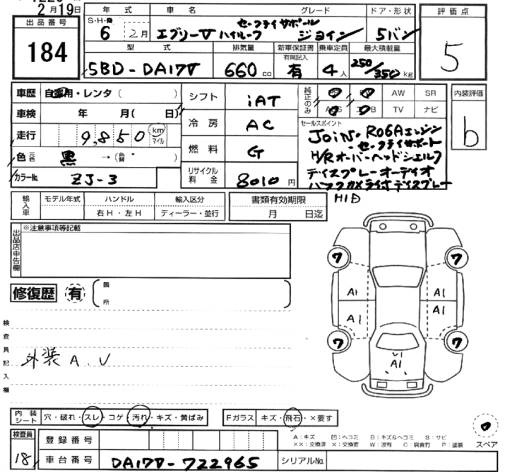 2月19日
出品番号
184
年式
車名
グレード
ドア・形状
評価点
S・H・R
6 2月
エブリーV ハイルーフ
セーフティサポート
ジョイン
5バン
5
型式
排気量
新車保証書
乗車定員
最大積載量
5BD-DA17V
660cc
有
4人
250/350kg
車歴
自家用・レンタ( )
シフト
iAT
純正のみ
AW SR
TV ナビ
内装評価
b
車検
年 月( 日)
冷房
AC
セールスポイント
走行
9,850 km マイル
燃料
G
JOiN・R06Aエンジン
セーフティサポート
色
黒
リサイクル料金
8010円
H/R オーバーヘッドシェルフ
ディスプレーオーディオ
カラーNo.
ZJ-3
バックカメラ
HID
輸入車
モデル年式
ハンドル
右H・左H
輸入区分
ディーラー・並行
書類有効期限
月 日迄
出品店申告欄
※注意事項等記載
修復歴
有
箇所
検査員記入欄
外装 A.U
7
7
A1
A1
A1
A1
7
7
A1
スペア
内装シート
穴・破れ・スレ・コゲ・汚れ・キズ・黄ばみ
Fガラス
キズ・飛石・×要す
検査員
18
登録番号
車台番号
DA17V-722965
シリアルNo.